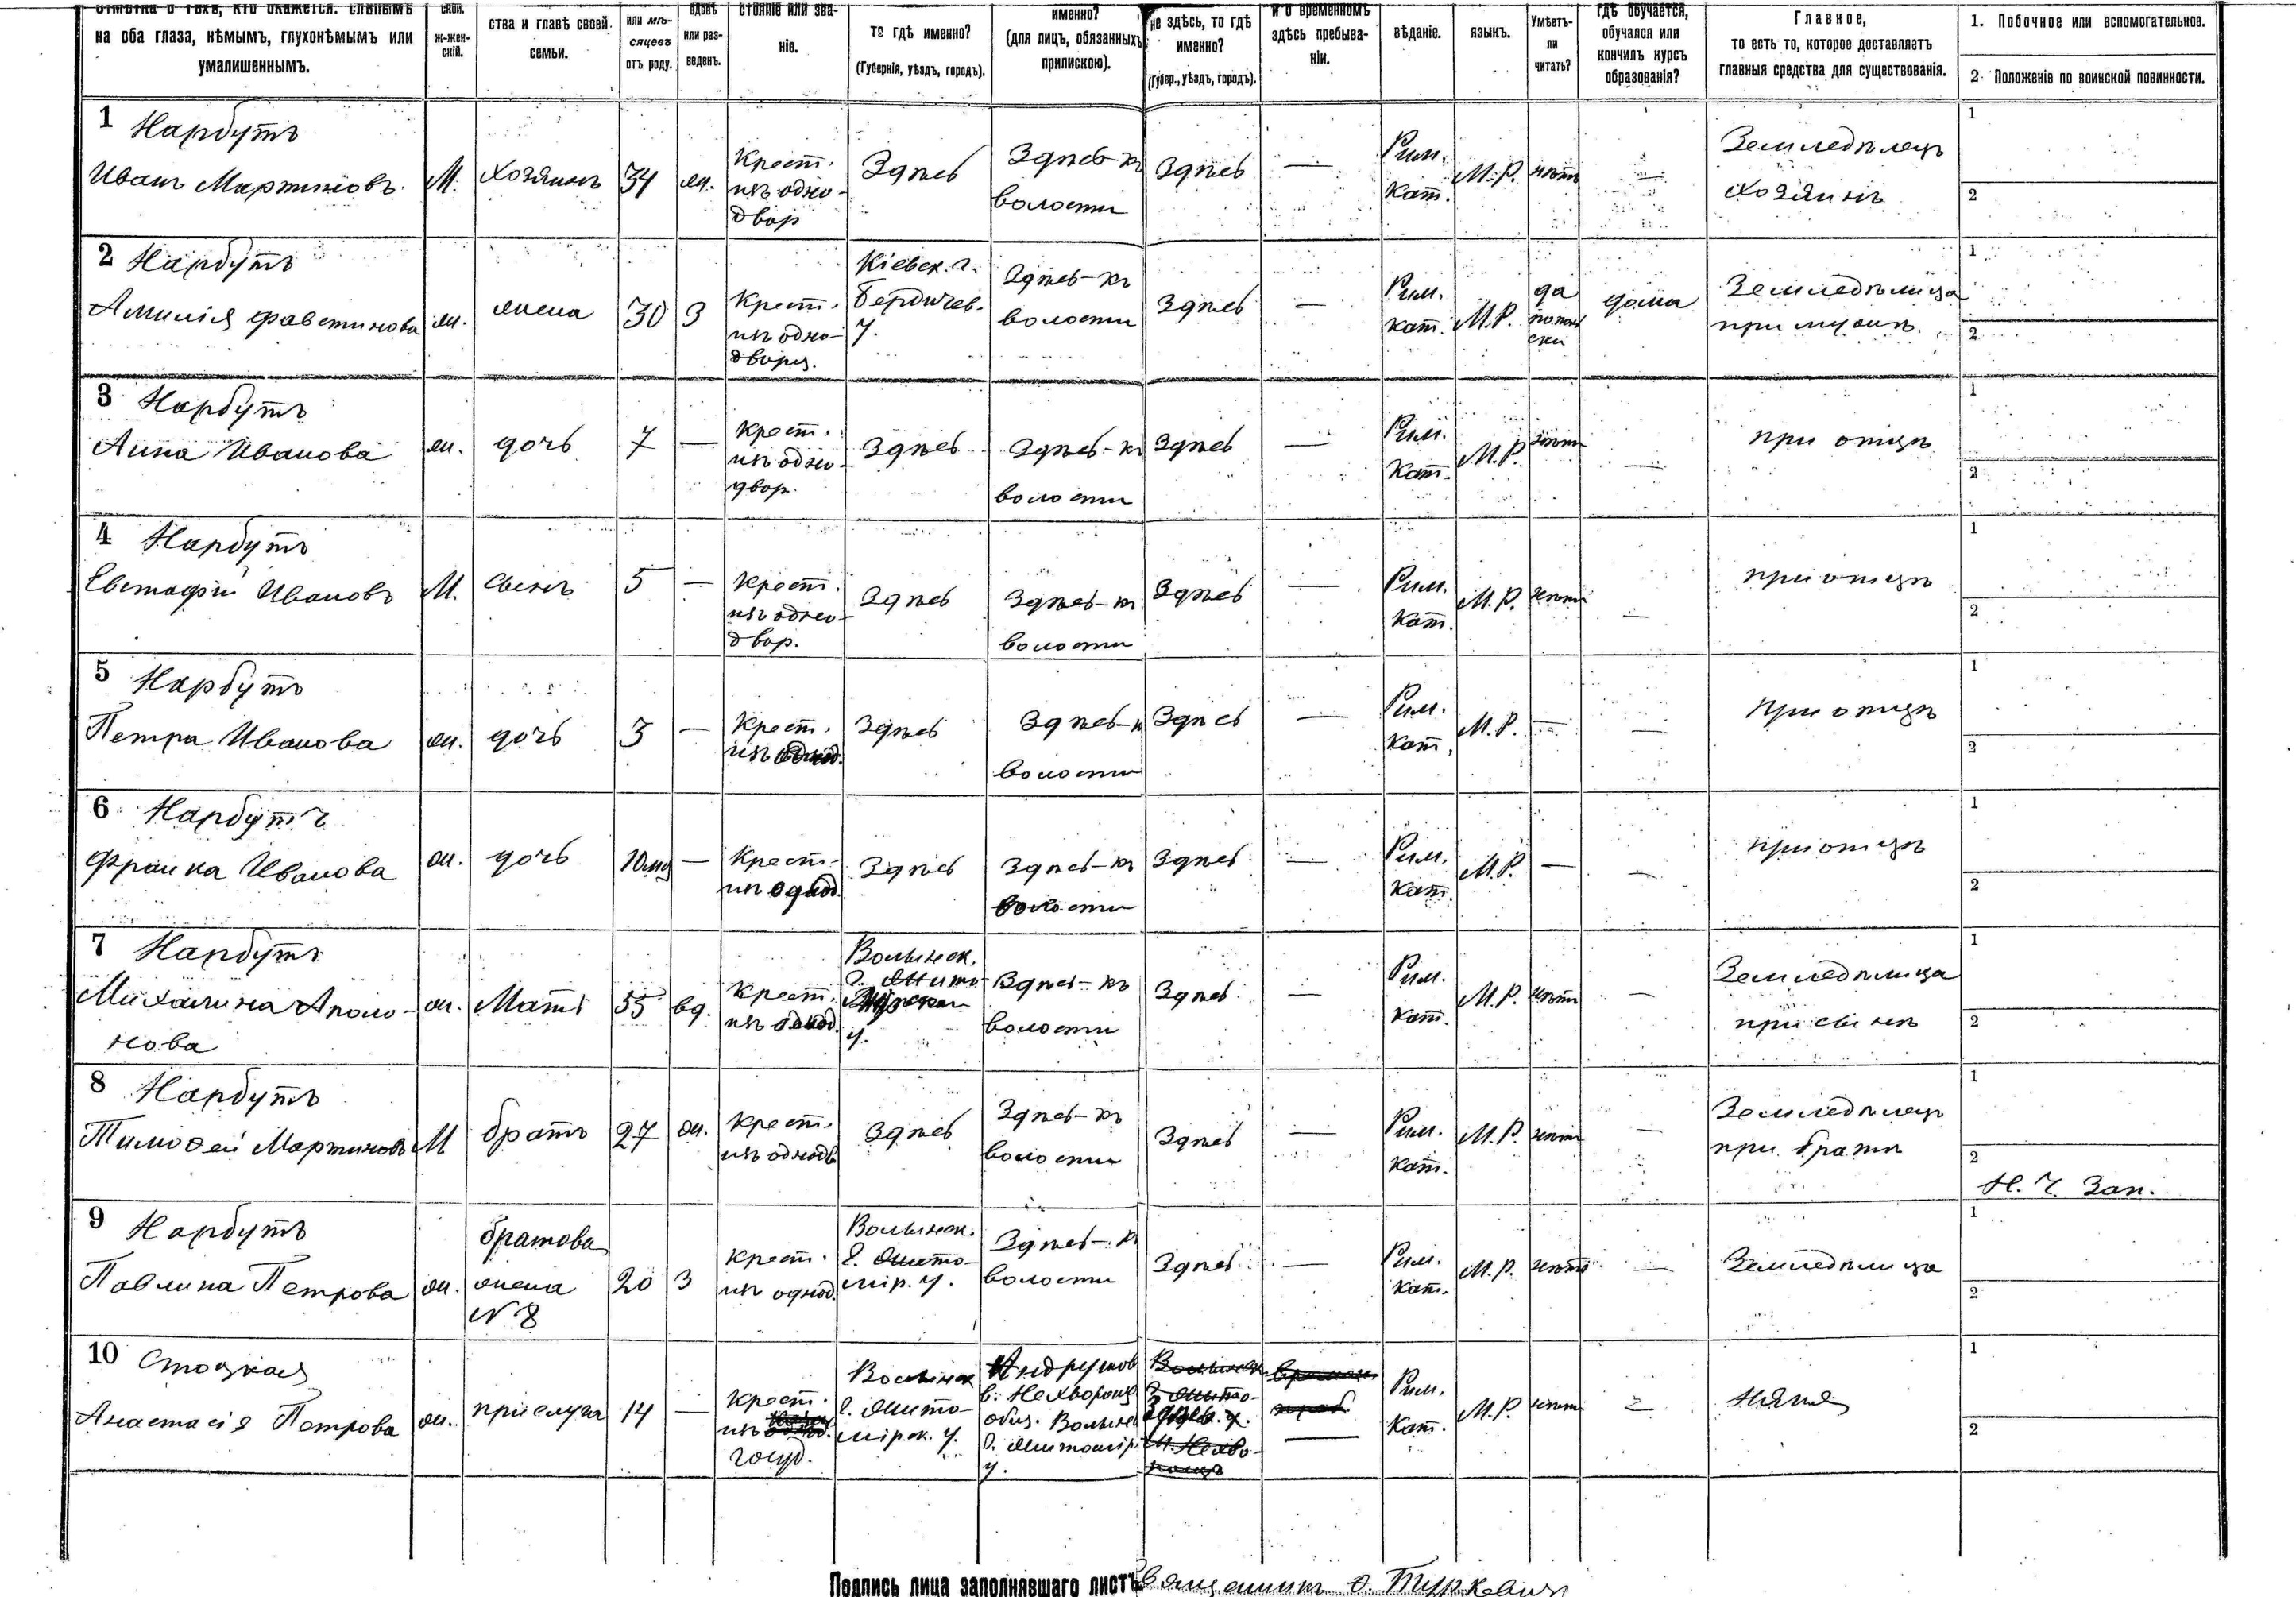 на оба глаза, нѣмымъ, глухонѣмымъ или умалишеннымъ.
ж-жен-скій.
ства и главѣ своей семьи.
или мѣ-сяцевъ отъ роду.
или раз-веденъ.
стояніе или зва-ніе.
то гдѣ именно?
(Губернія, уѣздъ, городъ).
именно?
(для лицъ, обязанныхъ припискою).
не здѣсь, то гдѣ именно?
(Губер., уѣздъ, городъ).
и о временномъ здѣсь пребыва-ніи.
вѣданіе.
языкъ.
Умѣетъ-ли читать?
гдѣ обучается, обучался или кончилъ курсъ образованія?
Главное,
то есть то, которое доставляетъ главныя средства для существованія.
1. Побочное или вспомогательное.
2 Положеніе по воинской повинности.
1 Нарбутъ
Иванъ Мартиновъ. М. хозяинъ 34 ж. Крест. изъ одно-двор Здѣсь Здѣс-къ волости Здѣсь — Рим. Кат. М.Р. нѣтъ — Земледѣлец хозяинъ
1
2
2 Нарбутъ
Амилія Фавстинова ж. жена 30 З Крест. изъ одно-дворц. Кіевск. г. Бердичев. у. Здѣс-къ волости Здѣсь — Рим. кат. М.Р. да по поль ски дома Земледѣлица при мужѣ.
1
2
3 Нарбутъ
Анна Иванова ж. дочь 7 — крест. изъ одно-двор. Здѣсь Здѣс-къ волости Здѣсь — Рим. Кат. М.Р. нѣтъ — при отцѣ
1
2
4 Нарбутъ
Евстафій Ивановъ М. сынъ 5 — Крест. изъ одно-двор. Здѣсь Здѣс-къ волости Здѣсь — Рим. Кат. М.Р. нѣтъ — при отцѣ
1
2
5 Нарбутъ
Петра Иванова ж. дочь 3 — Крест. изъ однод. Здѣсь Здѣс-к волости Здѣсь — Рим. Кат. М.Р. — — при отцѣ
1
2
6 Нарбутъ
Франка Иванова ж. дочь 10 мц — Крест. изъ однод. Здѣсь Здѣс-къ волости Здѣсь — Рим. Кат. М.Р. — — при отцѣ
1
2
7 Нарбутъ
Михалина Аполо-нова ж. Мать 55 вд. Крест. изъ однод. Волынск. г. Жито-мірскаг у. Здѣс-къ волости Здѣсь — Рим. Кат. М.Р. нѣтъ — Земледѣлица при сынѣ
1
2
8 Нарбутъ
Тимоѳей Мартиновъ М братъ 27 ж. Крест. изъ однодв Здѣсь Здѣс-къ волости Здѣсь — Рим. Кат. М.Р. нѣтъ — Земледѣлец при братѣ
1
2
Н. Ч. Зап.
9 Нарбутъ
Павлина Петрова ж. братова жена №8 20 З Крест. изъ однод. Волынск. г. Жито-мір. у. Здѣс-к волости Здѣсь — Рим. Кат. М.Р. нѣтъ — Земледѣлица
1
2
10 Стоцкая
Анастасія Петрова ж. прислуга 14 — Крест. изъ госуд. Волынск г. Жито-мірск. у. Андрушов в. Нехворощ общ. Волынс г. Житомір. у. Здѣсь — Рим. Кат. М.Р. нѣтъ — Няня
1
2
Подпись лица заполнявшаго листъ Священникъ Ѳ. Туркевичъ